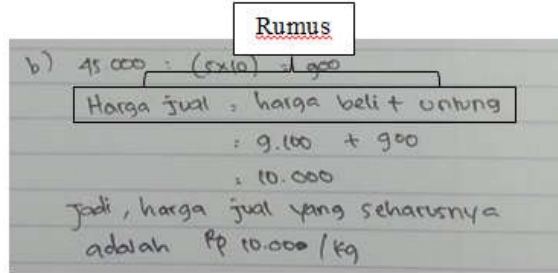 Rumus
b) 45 000 : (5x10) = 900
Harga jual = harga beli + untung
= 9.100 + 900
= 10.000
Jadi, harga jual yang seharusnya
adalah Rp 10.000 / kg